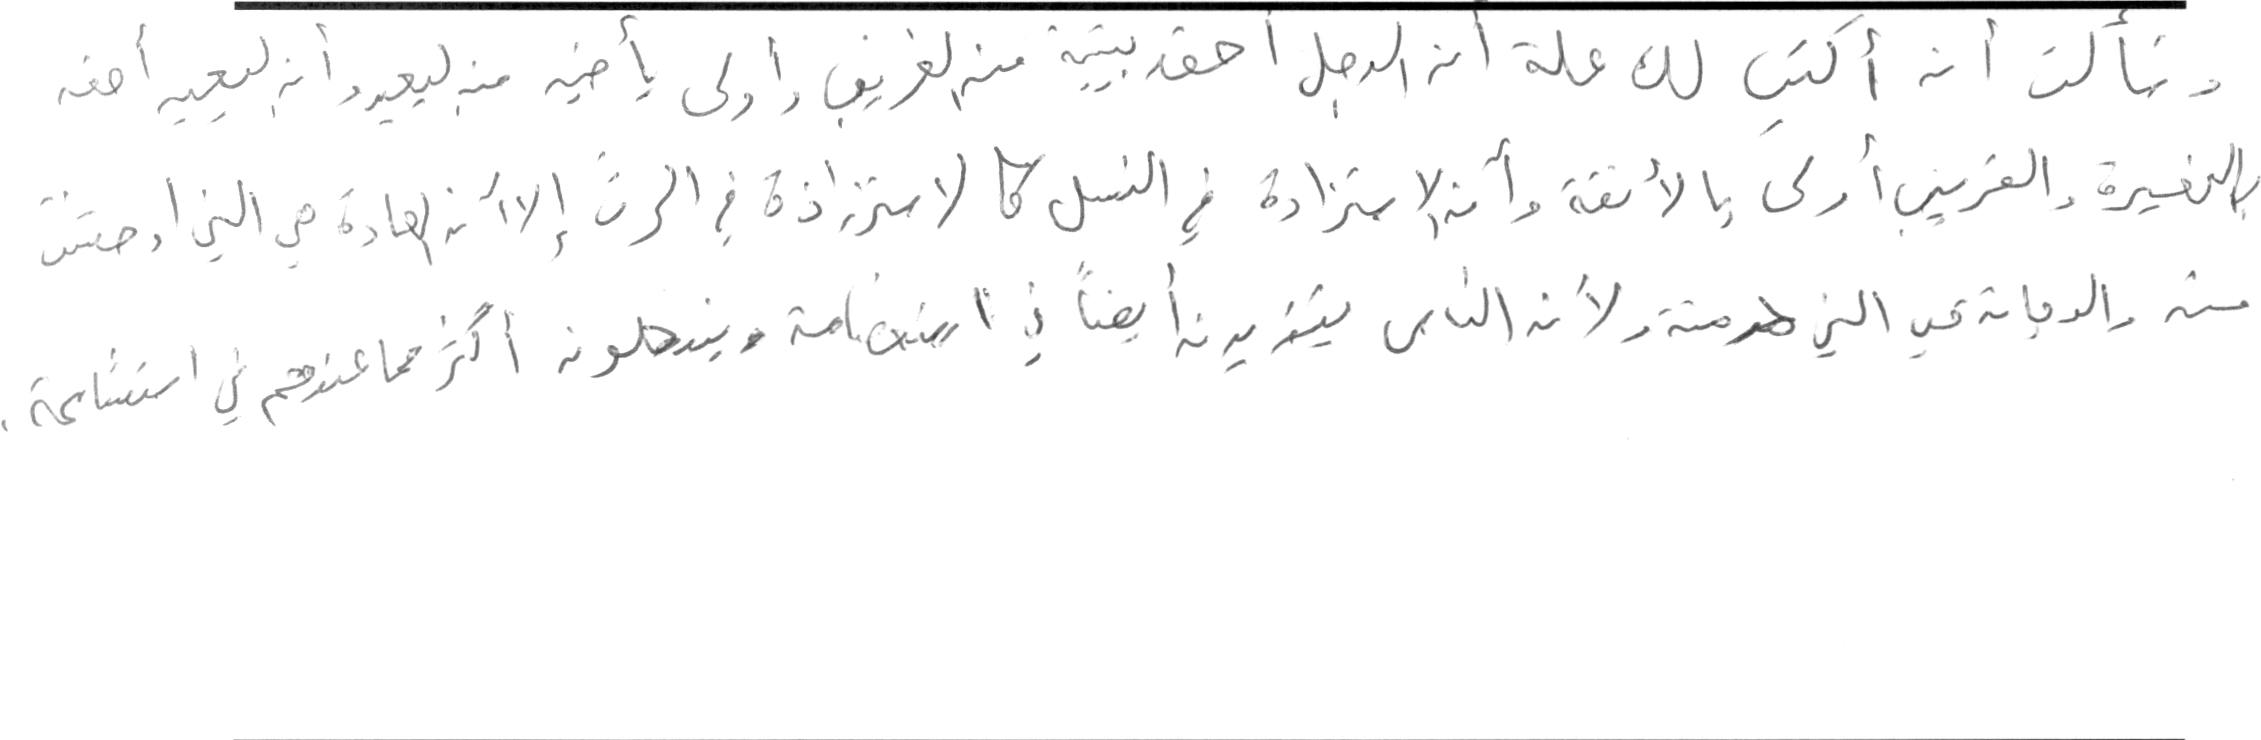 وسألت أن أكتب لك علة أن الرجل أحق ببيته من الغريب وأولى بأخيه من البعيد وأن البعيد أحق
بالغيرة والقريب أولى بالأنفة وأن الاستزادة في النسل كالاستزادة في الحرث إلا أن العادة هي التي أوحشت
منه والديانة هي التي حرمته ولأن الناس يتزيدون أيضاً في استعظامه وينتحلون أكثر مما عندهم في استشناعه.